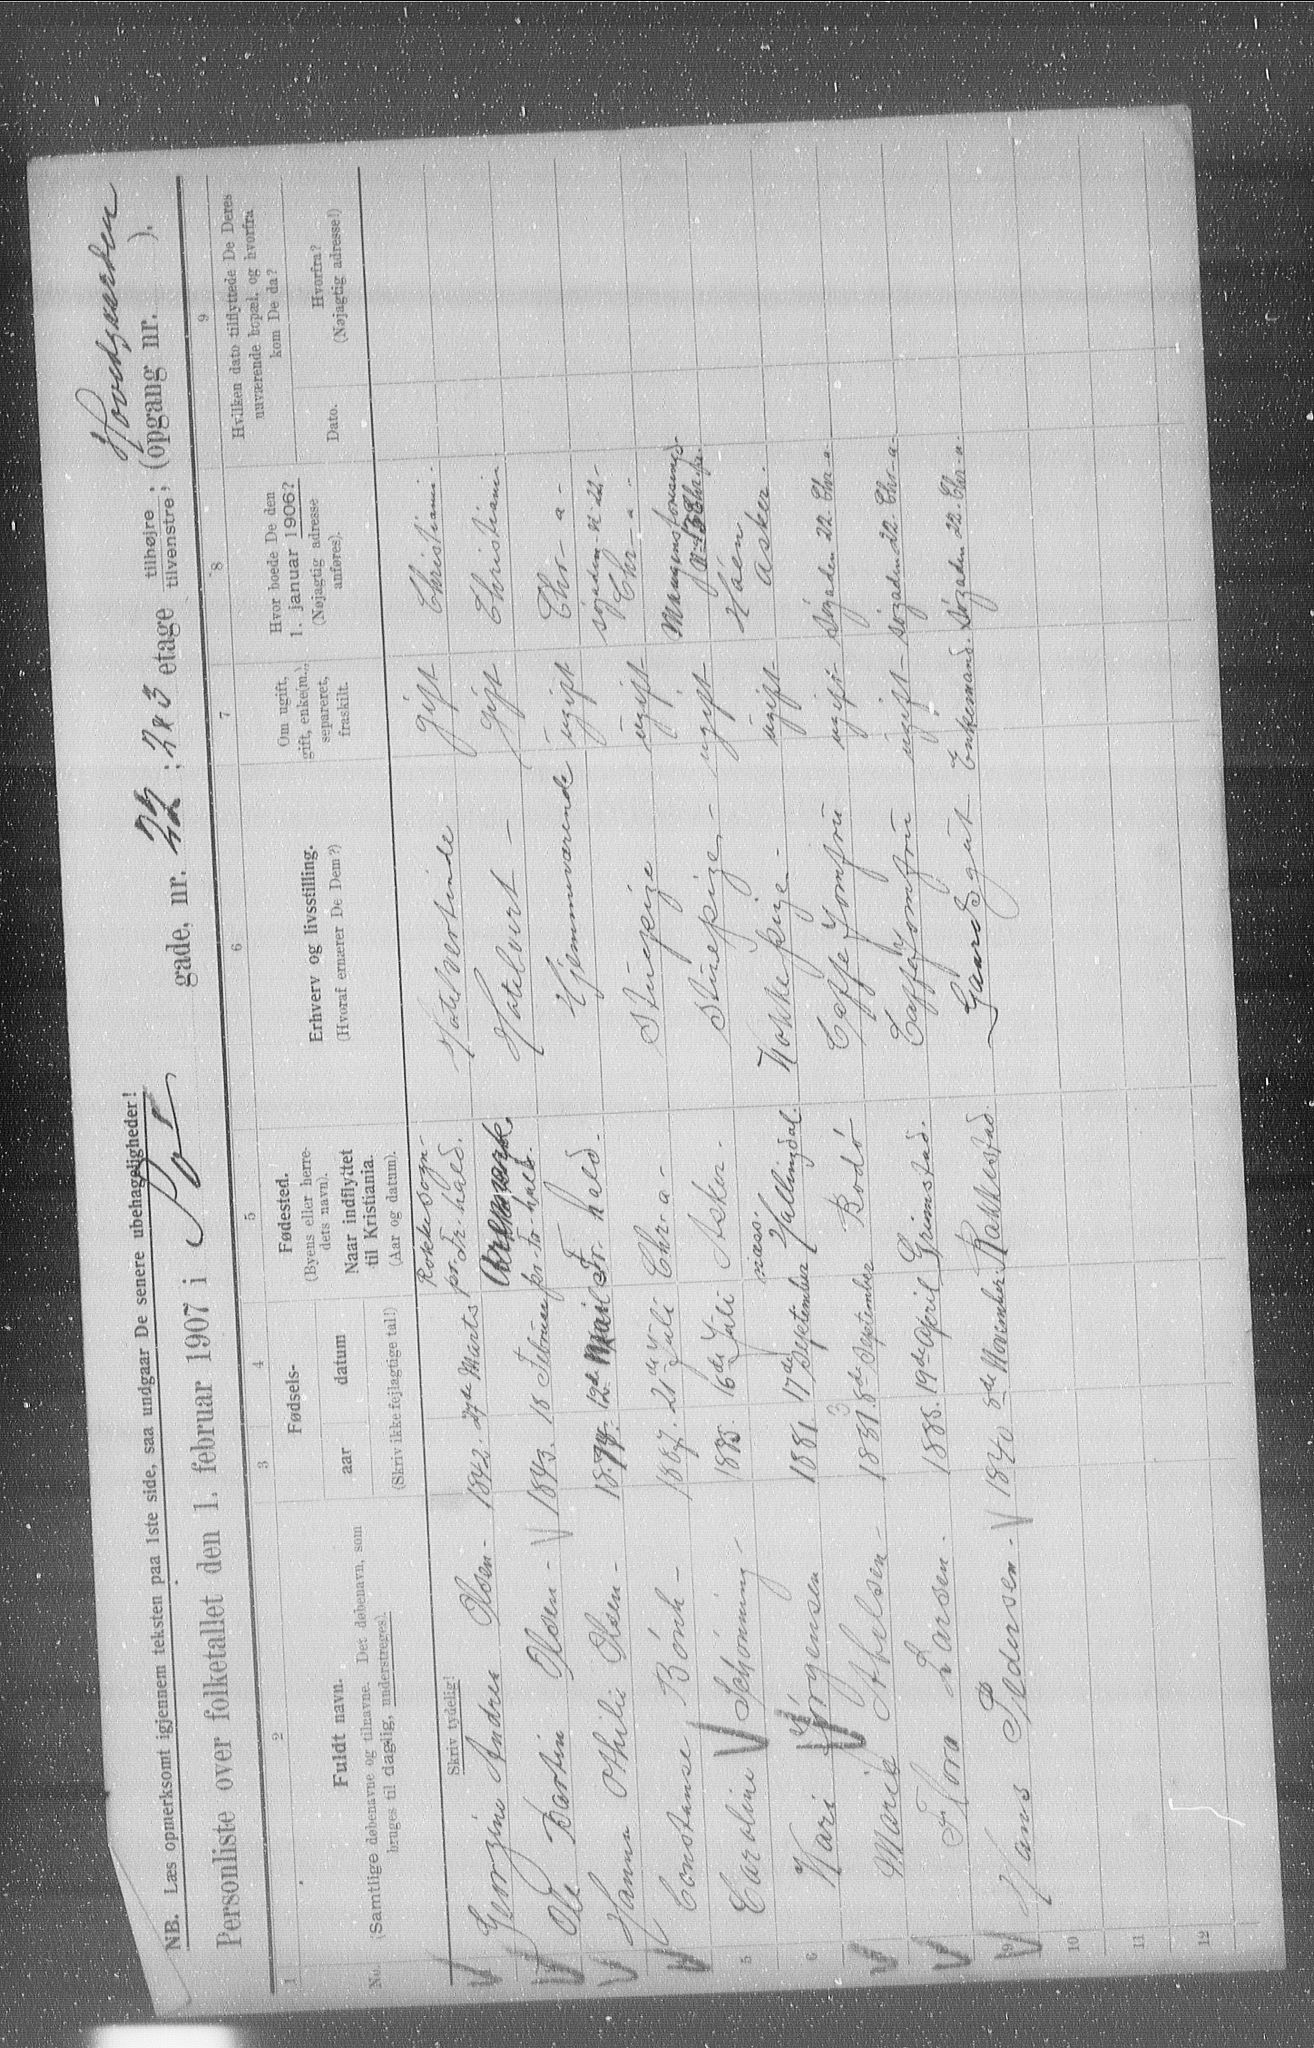 NB. Læs opmerksomt igjennem teksten paa 1ste side, saa undgaar De senere ubehageligheder!
Hovedgaarden
Personliste over folketallet den 1. februar 1907 i Sø gade, nr. 22 ; 2 & 3 etage tilhøjre, tilvenstre, (opgang nr. ).
1 2 3 4 5 6 7 8 9
No.
Fuldt navn.
(Samtlige døbenavne og tilnavne. Det døbenavn, som
bruges til daglig, understreges).
Skriv tydelig!
Fødsels-
aar datum
(Skriv ikke fejlagtige tal!)
Fødested.
(Byens eller herre-
dets navn).
Naar indflyttet
til Kristiania.
(Aar og datum).
Erhverv og livsstilling.
(Hvoraf ernærer De Dem?)
Om ugift,
gift, enke(m.),
separeret,
fraskilt.
Hvor boede De den
1. januar 1906?
(Nøjagtig adresse
anføres).
Hvilken dato tilflyttede De Deres
nuværende bopæl, og hvorfra
kom De da?
Dato.
Hvorfra?
(Nøjagtig adresse!)
Georgine Andrea Olsen - 1842. 27de Marts Rokke Sogn - pr. Fr. hald. Hotelvertinde gift Christiania.
Ole Martin Olsen - 1843. 18 Februar pr. Fr. hald. Hotelvert - gift Christiania.
Hanna Othilie Olsen - 12de Fr. hald. Hjemmeværende ugift Chr-a-
Constanse Bönk - 1887. 21de Juli Chr-a- Stuepige ugift Søgaden 22- Chr-a-
5 Caroline Schönning - 16de Juli Asker. Stuepige - ugift
6 Kari Jörgensen 1881 17de September næss. Hallingdal. Kokkepige - ugift Höen Asker.
Marie Abelsen - 8de September Bodó Caffe Jomfru ugift - Søgaden 22. Chr-a-
Flora Larsen. 1885. 19de April Grimstad. Caffe Jomfru ugift - Søgaden 22. Chr-a-
9 Hans Pedersen. 1840 8de November Rakkestad. Gaardsgut Enkemand. Søgaden 22. Chr-a-
10
11
12